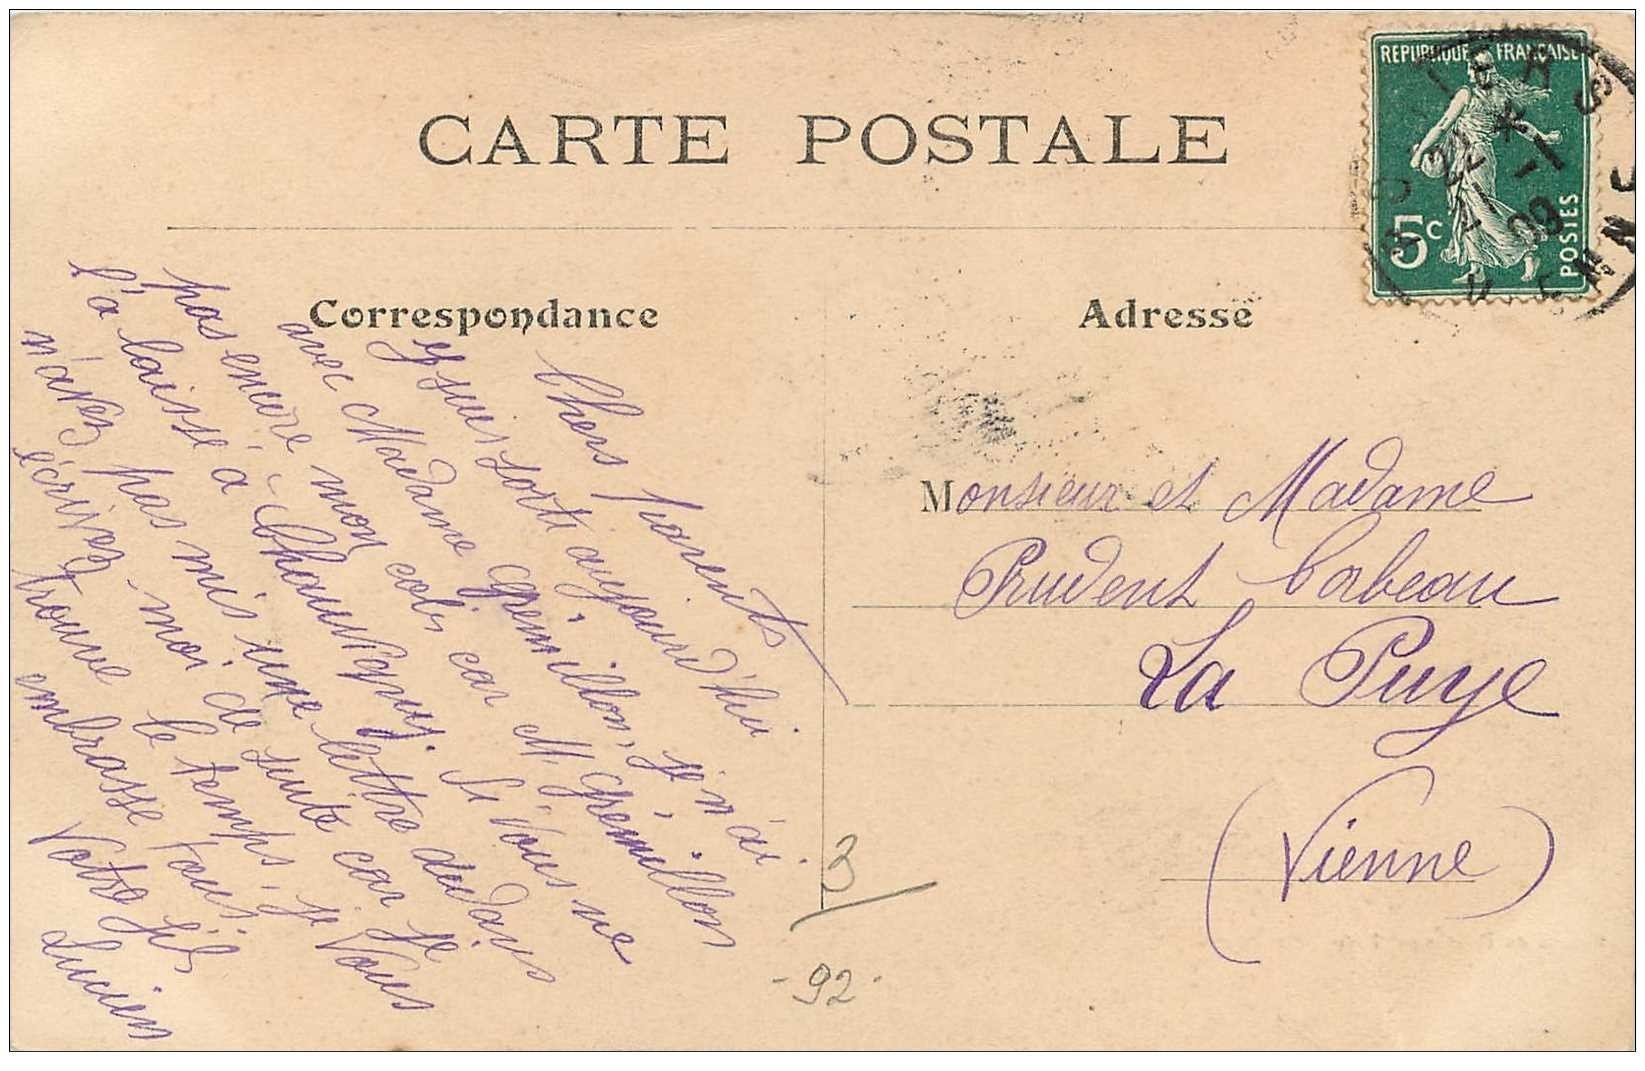 CARTE POSTALE
REPUBLIQUE FRANÇAISE
5c
POSTES
Correspondance
Adresse
Chers parents
Je suis sorti aujourd'hui
avec Madame Grémillon, je n'ai
pas encore mon colis car M. Grémillon
l'a laissé à Chauvigny. Si vous ne
n'avez pas mis une lettre dedans
écrivez-moi de suite car je
trouve le temps. Je vous
embrasse tous.
Votre fils
Lucien
Monsieur et Madame
Prudent Cabeau
La Puye
(Vienne)
3
-92-